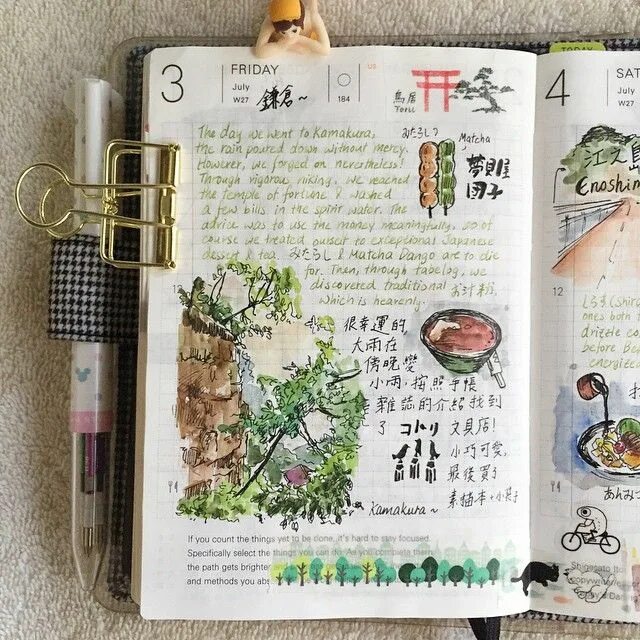 3
FRIDAY
July
W27
鎌倉~
184
US
鳥居
Torii
The day we went to Kamakura,
the rain poured down without mercy.
However, we forged on nevertheless!
Through rigorous hiking, we reached
the temple of fortune & washed
a few bills in the spirit water. The
advice was to use the money meaningfully, so of
course we treated ourself to exceptional Japanese
dessert & tea. みたらし & Matcha Dango are to die
for. Then, through tabelog, we
discovered traditional お汁粉,
which is heavenly.
みたらし
Matcha
夢見屋
団子
12
很幸運的,
大雨在
傍晚變
小雨,按照手帳
雜誌的介紹找到
了 コトリ 文具店!
小巧可愛,
最後買了
素描本+小袋子
Kamakura~
If you count the things yet to be done, it's hard to stay focused.
Specifically select the things you can do. As you complete them,
the path gets brighter
and methods you abs
TODAY
4
SAT
July
W27
江ノ島
Enoshim
12
しらす (Shir
ones both
drizzle co
before be
energized
あんみつ
Shigesato It
copywriter/e
by's Dan